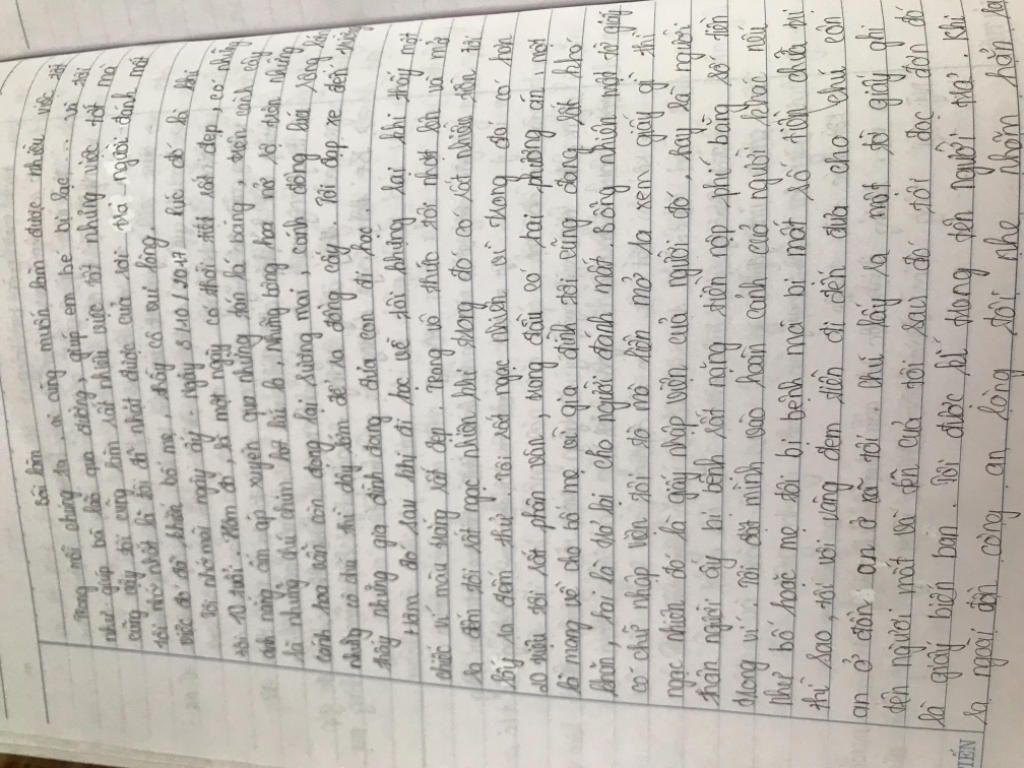 Bài làm
Trong mỗi chúng ta, ai cũng muốn làm được nhiều việc tốt
như giúp bà lão qua đường, giúp em bé bị lạc ... và tôi
cũng vậy tôi cũng làm rất nhiều việc tốt những việc tốt mà
tôi nhớ nhất là tôi đã nhặt được của rơi trả người đánh mất
việc đó đã khiến bố mẹ, thầy cô vui lòng.
Tôi nhớ mãi ngày ấy - ngày 3/10/2017, lúc đó là khi
tôi 10 tuổi. Hôm đó, là một ngày có thời tiết rất đẹp, có những
tia nắng ấm áp xuyên qua những tán lá bàng, trên cành cây
là những chú chim hót líu lo. Những bông hoa nở rộ trên những
cánh hoa vẫn còn đọng lại sương mai, cánh đồng lúa
những cô chú thì dậy sớm để ra đồng cấy. Tôi đạp xe đến
thấy những gia đình đang đưa con đi học.
Hôm đó sau khi đi học về tôi không sai khi thấy một
chiếc ví màu trắng rất đẹp. Trong ví thức tôi nhặt lên và mở
ra đếm tôi rất ngạc nhiên khi trong đó có rất nhiều tiền tôi
lấy ra đếm thử, tôi rất ngạc nhiên vì trong đó có hơn
20 triệu tôi rất phân vân, trong đầu có hai phương án, một
là mang về cho bố mẹ vì gia đình tôi cũng đang rất khó
khăn, hai là trả lại cho người đánh mất. Bỗng nhiên một tờ giấy
có chữ nhập viện tôi tò mò liền mở ra xem giấy gì thì
ngạc nhiên đó là giấy nhập viện của người đó, hay là người
thân người ấy bị bệnh rất nặng tiền nộp phí bằng số tiền
trong ví. Tôi đặt mình vào hoàn cảnh của người khác nếu
như bố hoặc mẹ tôi bị bệnh mà bị mất số tiền chữa trị
thì sao, tôi vội vàng đem tiền đi đến đưa cho chú công
an ở đồn an ở xã tôi. Chú lấy ra một tờ giấy ghi
tên người mất và tên của tôi sau đó tôi đọc đơn đó
là giấy biên bản. Tôi được kí trong tên người trả. Khi
ra ngoài đồn công an lòng tôi nhẹ nhõm hẳn